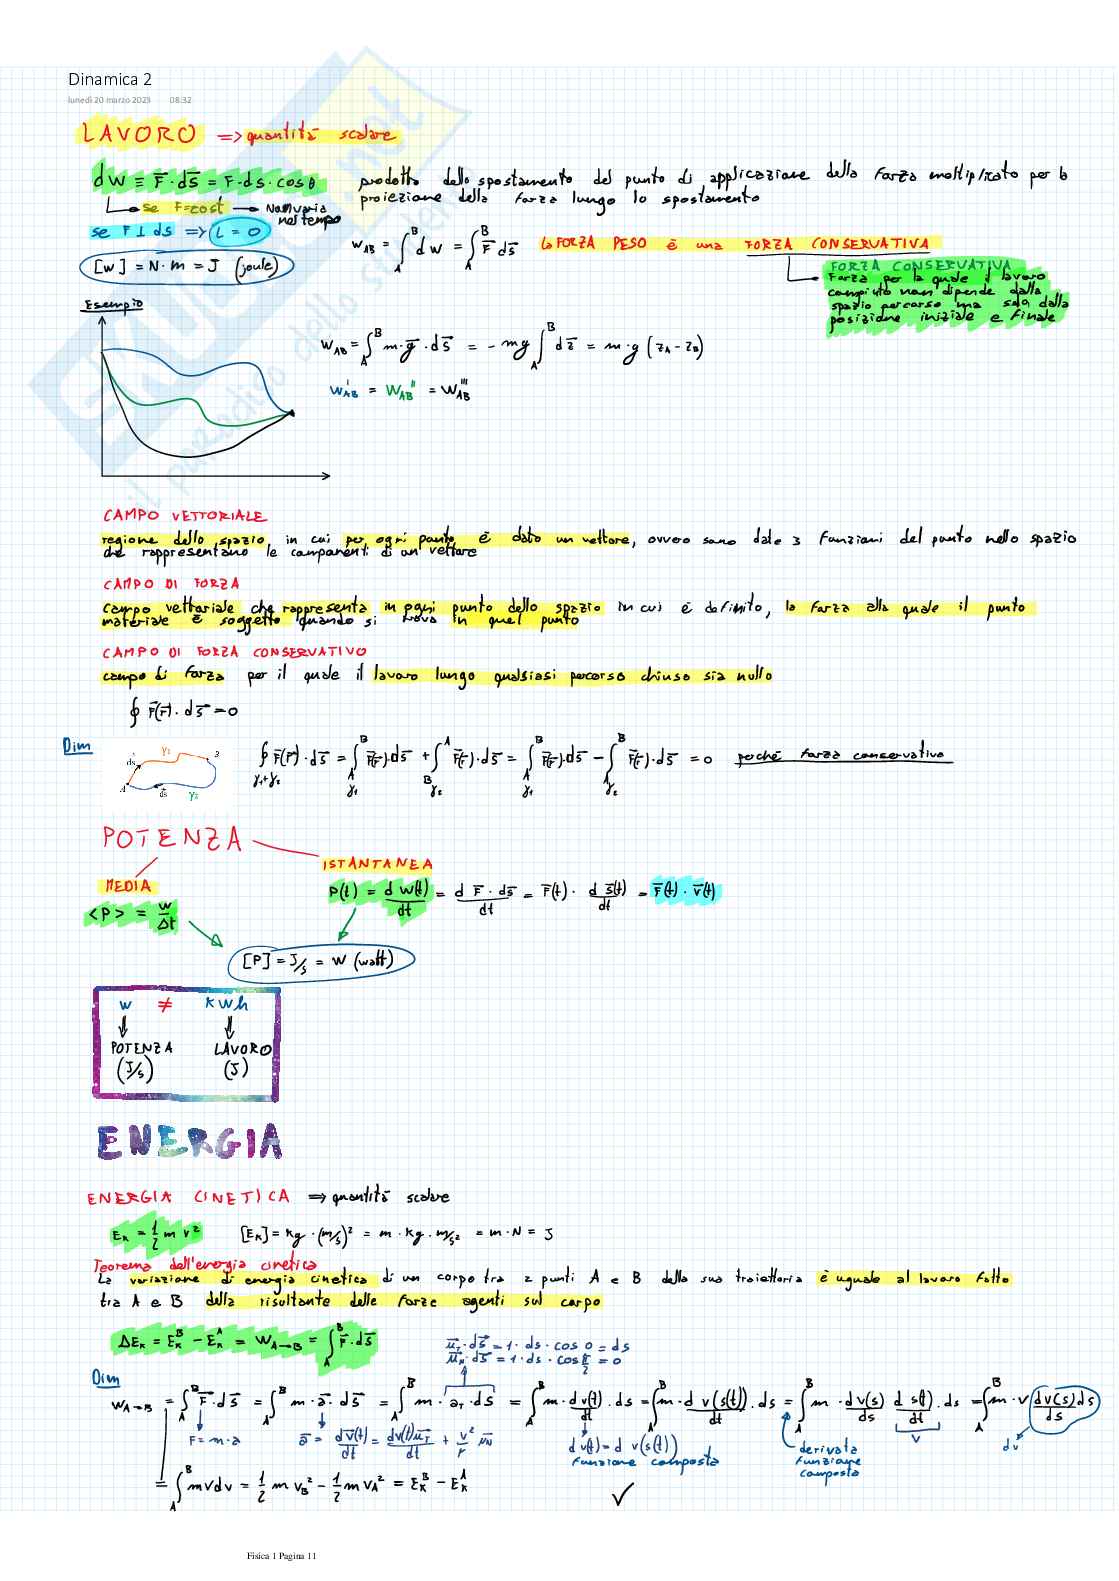 Dinamica 2
lunedì 20 marzo 2023 08:32
LAVORO => quantità scalare
dW ≡ F⃗·ds⃗ = F·ds·cosθ
prodotto dello spostamento del punto di applicazione della Forza moltiplicato per la
proiezione della Forza lungo lo spostamento
se F=cost → Non varia nel tempo
se F ⊥ ds => L = 0
W_AB = ∫_A^B dW = ∫_A^B F⃗ ds⃗
la FORZA PESO è una FORZA CONSERVATIVA
[W] = N·m = J (joule)
FORZA CONSERVATIVA
Forza per la quale il lavoro
compiuto non dipende dallo
spazio percorso ma solo dalla
posizione iniziale e finale
Esempio
W_AB = ∫_A^B m·g⃗·ds⃗ = -mg ∫_A^B dz⃗ = m·g (z_A - z_B)
W_AB' = W_AB'' = W_AB'''
CAMPO VETTORIALE
regione dello spazio, in cui per ogni punto è dato un vettore, ovvero sono date 3 funzioni del punto nello spazio
che rappresentano le componenti di un vettore
CAMPO DI FORZA
campo vettoriale che rappresenta in ogni punto dello spazio in cui è definito, la forza alla quale il punto
materiale è soggetto quando si trova in quel punto
CAMPO DI FORZA CONSERVATIVO
campo di forza per il quale il lavoro lungo qualsiasi percorso chiuso sia nullo
∮ F⃗(r⃗)·ds⃗ = 0
Dim
γ1 B ds A ds γ2
∮_γ1+γ2 F⃗(r⃗)·ds⃗ = ∫_A^B_γ1 F⃗(r⃗)·ds⃗ + ∫_B^A_γ2 F⃗(r⃗)·ds⃗ = ∫_A^B_γ1 F⃗(r⃗)·ds⃗ - ∫_A^B_γ2 F⃗(r⃗)·ds⃗ = 0 perché forza conservativa
POTENZA
ISTANTANEA
MEDIA
P(t) = dW(t)/dt = d F⃗·ds⃗/dt = F⃗(t)· d s⃗(t)/dt = F⃗(t)·v⃗(t)
<P> = W/Δt
[P] = J/s = W (watt)
W ≠ kWh
POTENZA LAVORO
(J/s) (J)
ENERGIA
ENERGIA CINETICA => quantità scalare
E_K = 1/2 m v² [E_K] = kg·(m/s)² = m·kg·m/s² = m·N = J
Teorema dell'energia cinetica
La variazione di energia cinetica di un corpo tra 2 punti A e B della sua traiettoria è uguale al lavoro fatto
tra A e B della risultante delle forze agenti sul corpo
ΔE_K = E_K^B - E_K^A = W_A→B = ∫_A^B F⃗·ds⃗
u⃗_T·ds⃗ = 1·ds·cos 0 = ds
u⃗_N·ds⃗ = 1·ds·cos π/2 = 0
Dim
W_A→B = ∫_A^B F⃗·ds⃗ = ∫_A^B m·a⃗·ds⃗ = ∫_A^B m·a_T·ds = ∫_A^B m·dv(t)/dt·ds = ∫_A^B m·d v(s(t))/dt·ds = ∫_A^B m·dv(s)/ds d s(t)/dt·ds = ∫_A^B m·v dv(s)/ds ds
F=m·a a⃗ = dv⃗(t)/dt = dv(t)u⃗_T/dt + v²/r u⃗_N
dv(t) = d v(s(t))
funzione composta
derivata
funzione
composta
v
dv
= ∫_A^B mvdv = 1/2 m v_B² - 1/2 m v_A² = E_K^B - E_K^A ✓
Fisica 1 Pagina 11